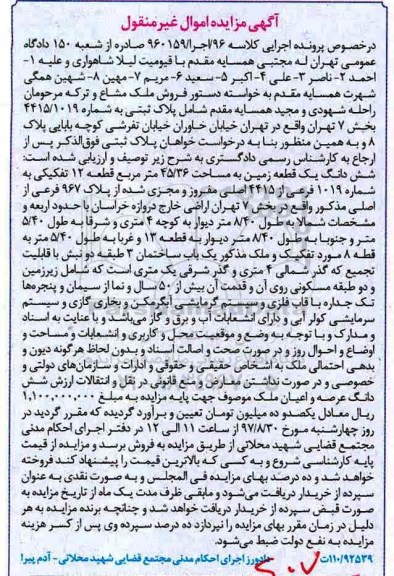 آگهی مزایده اموال غیر منقول
درخصوص پرونده اجرایی کلاسه ۹۶/اجرا/۹۶۰۱۵۹ صادره از شعبه ۱۵۰ دادگاه
عمومی تهران له مجتبی همسایه مقدم با قیومیت لیلا شاهواری و علیه ۱-
احمد ۲- ناصر ۳- علی ۴- اکبر ۵- سعید ۶- مریم ۷- مهین ۸- شهین همگی
شهرت همسایه مقدم به خواسته دستور فروش ملک مشاع و ترکه مرحومان
راحله شهودی و مجید همسایه مقدم شامل پلاک ثبتی به شماره ۴۴۱۵/۱۰۱۹
بخش ۷ تهران واقع در تهران خیابان خاوران خیابان تفرشی کوچه بابایی پلاک
۸ و به همین منظور بنا به درخواست خواهان پلاک ثبتی فوق‌الذکر پس از
ارجاع به کارشناس رسمی دادگستری به شرح زیر توصیف و ارزیابی شده است:
شش دانگ یک قطعه زمین به مساحت ۴۵/۳۶ متر مربع قطعه ۱۲ تفکیکی به
شماره ۱۰۱۹ فرعی از ۴۴۱۵ اصلی مفروز و مجزی شده از پلاک ۹۶۷ فرعی از
اصلی مذکور واقع در بخش ۷ تهران اراضی خارج دروازه خراسان با حدود اربعه و
مشخصات شمالا به طول ۸/۴۰ متر دیوار به کوچه ۴ متری و شرقا به طول ۵/۴۰
متر و جنوبا به طول ۸/۴۰ متر دیوار به قطعه ۱۳ و غربا به طول ۵/۴۰ متر به
قطعه ۸ مورد تفکیک و ملک مذکور یک باب ساختمان ۳ طبقه دو نبش با قابلیت
تجمیع که گذر شمالی ۴ متری و گذر شرقی یک متری است که شامل زیرزمین
و دو طبقه مسکونی روی آن و قدمت آن بیش از ۵۰ سال و نما از سیمان و پنجره‌ها
تک جداره با قاب فلزی و سیستم گرمایشی آبگرمکن و بخاری گازی و سیستم
سرمایشی کولر آبی و دارای انشعابات آب و برق و گاز می‌باشد و با عنایت به اسناد
و مدارک و با توجه به وضع و موقعیت محل و کاربری و انشعابات و مساحت و
اوضاع و احوال روز و در صورت صحت و اصالت اسناد و بدون لحاظ هرگونه دیون و
بدهی احتمالی ملک به اشخاص حقیقی و حقوقی و ادارات و سازمان‌های دولتی و
خصوصی و در صورت نداشتن معارض و منع قانونی در نقل و انتقالات ارزش شش
دانگ عرصه و اعیان ملک موصوف جهت پایه مزایده به مبلغ ۱,۱۰۰,۰۰۰,۰۰۰
ریال معادل یکصدو ده میلیون تومان تعیین و برآورد گردیده که مقرر گردید در
روز چهارشنبه مورخ ۹۷/۸/۳۰ از ساعت ۱۱ الی ۱۲ در دفتر اجرای احکام مدنی
مجتمع قضایی شهید محلاتی از طریق مزایده به فروش برسد و مزایده از قیمت
پایه کارشناسی شروع و به کسی که بالاترین قیمت را پیشنهاد کند فروخته
خواهد شد و ده درصد بهای مزایده فی المجلس و به صورت نقدی به عنوان
سپرده از خریدار دریافت می‌شود و مابقی ظرف مدت یک ماه از تاریخ مزایده به
صورت قبض سپرده از خریدار دریافت خواهد شد و چنانچه برنده مزایده به هر
دلیل در زمان مقرر بهای مزایده را نپردازد ده درصد سپرده وی پس از کسر هزینه
مزایده به نفع دولت ضبط می‌شود.
۱۱۰/۹۲۵۳۹ت دادورز اجرای احکام مدنی مجتمع قضایی شهید محلاتی - آدم پیرا